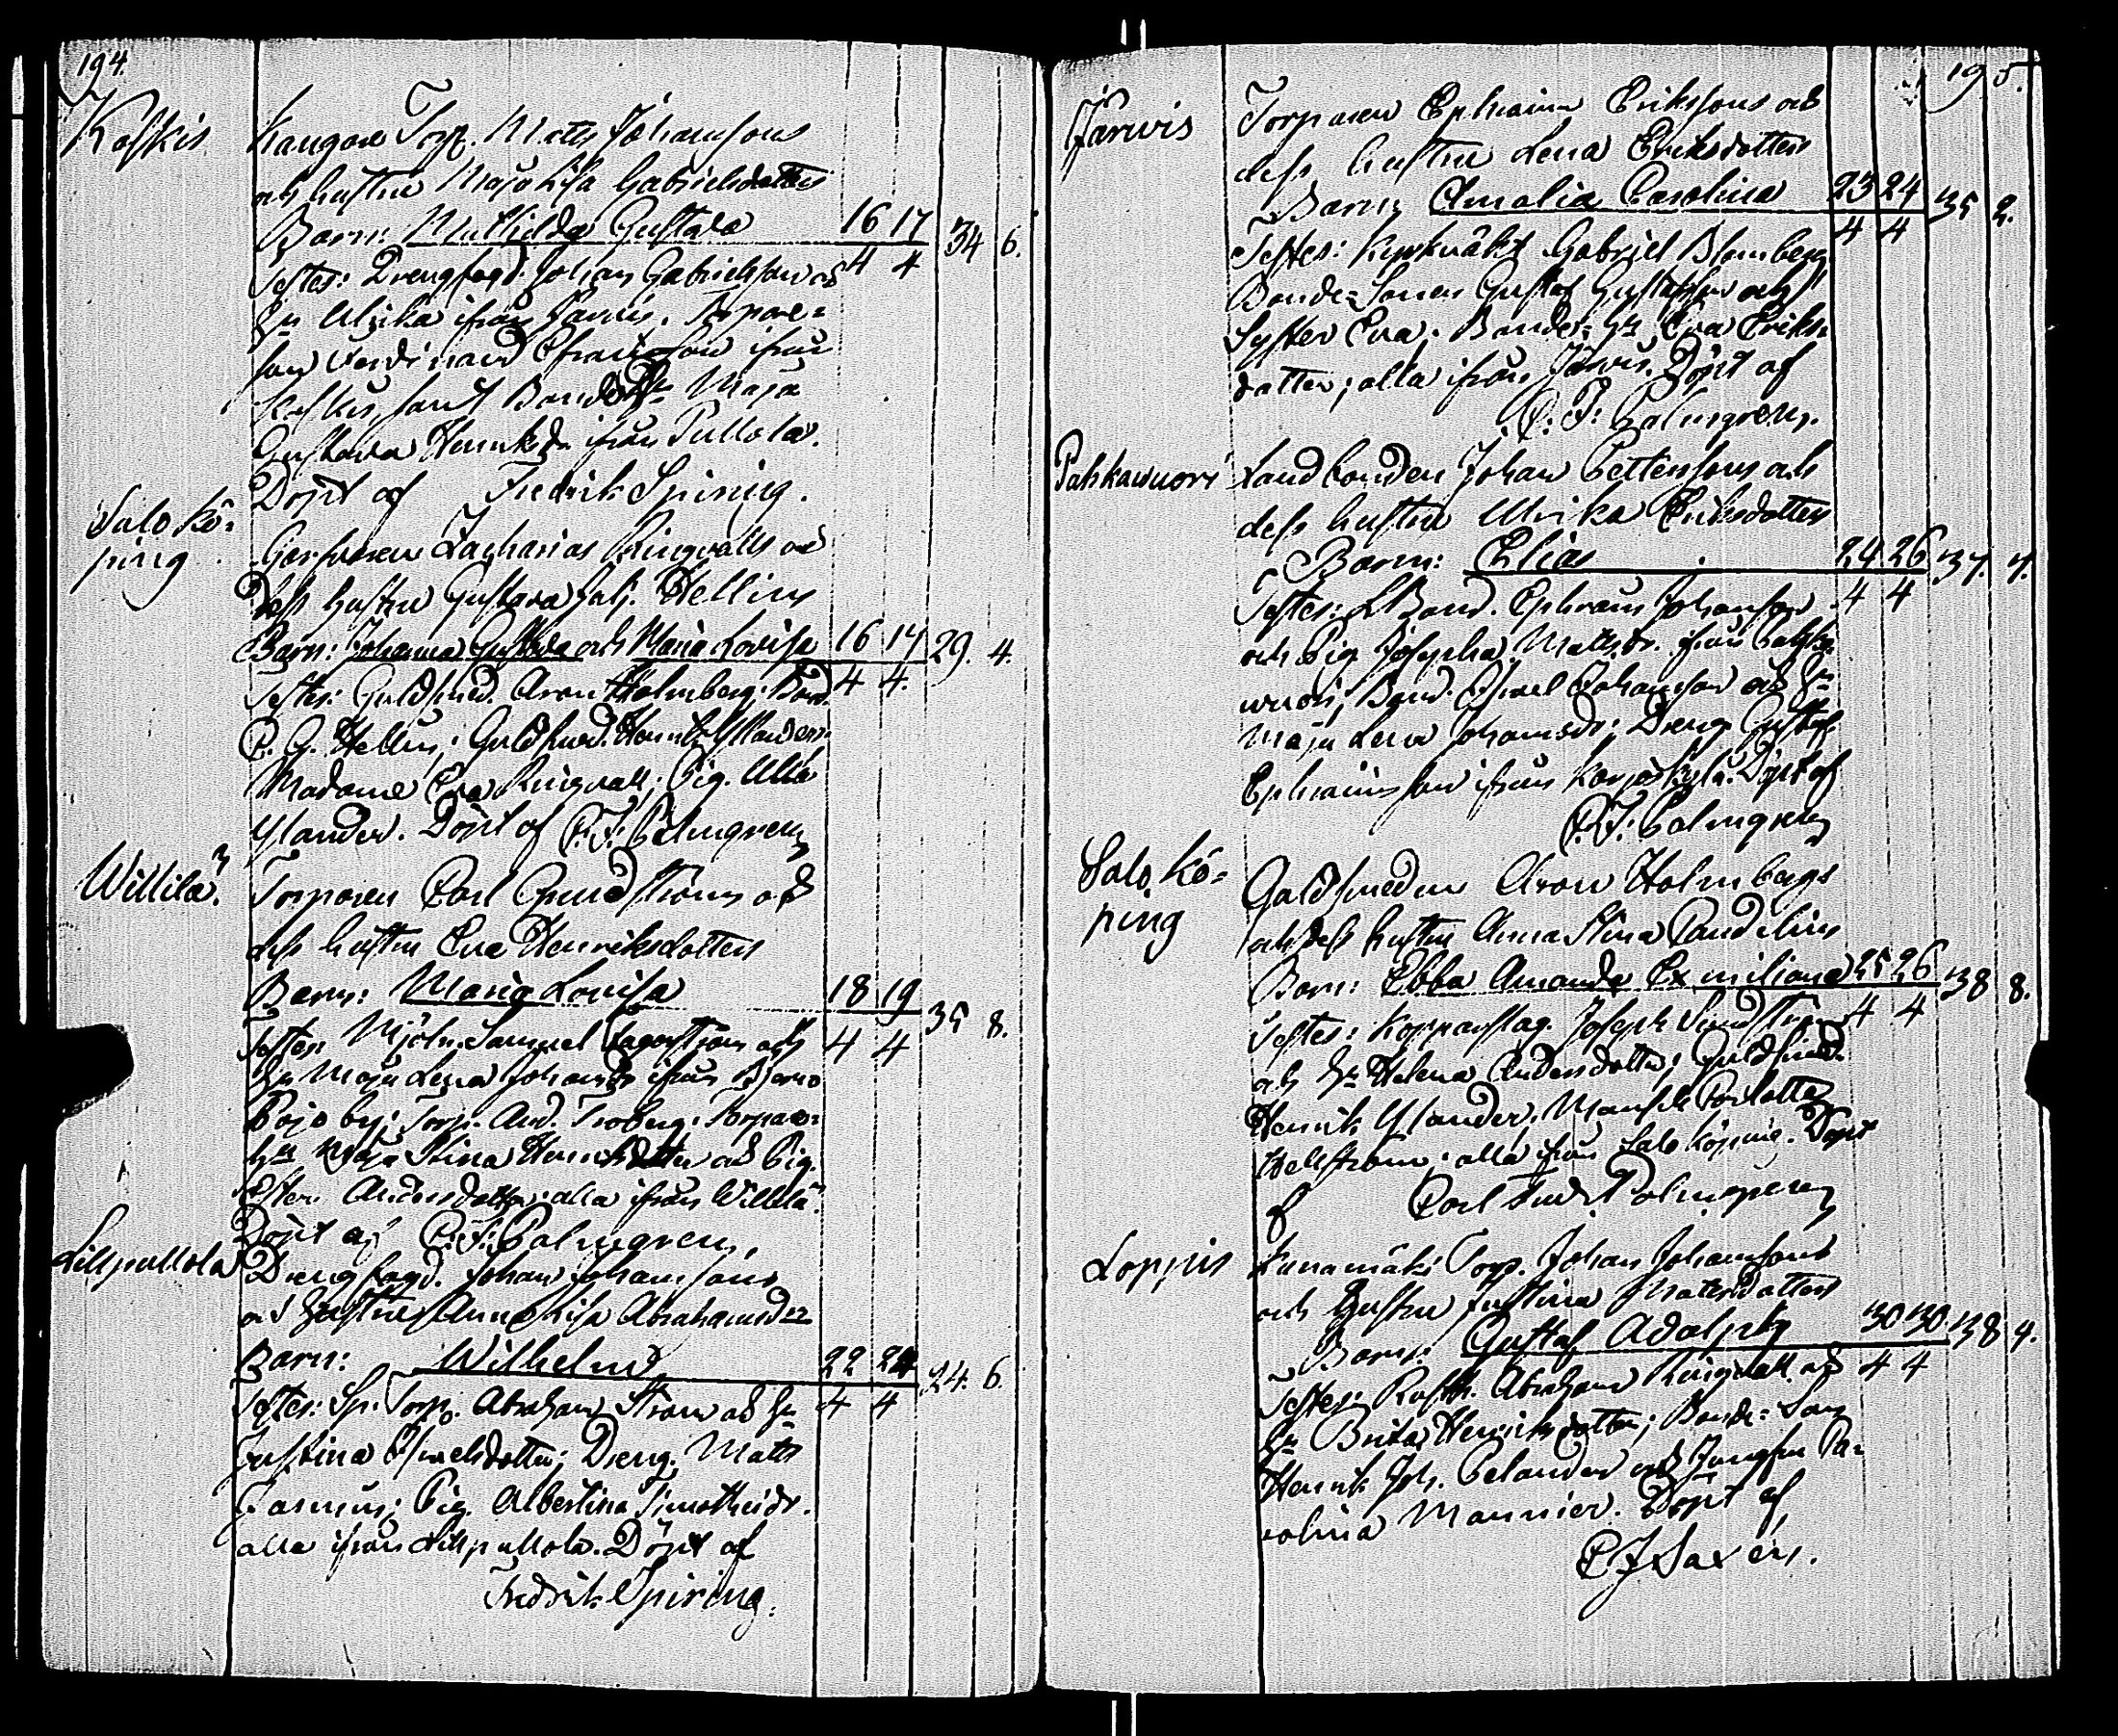 194.
Koskis
Kangare Torp. Matts Johanssons
och hustru Maja Lisa Gabrielsdotters
Barn: Mathilda Gustava 16 17 34 6.
Testes: Drengfogd. Johan Gabrielsson och 4 4
Hu Ulrika ifrån Pavis. Torpare=
son Ferdinand Efraimson ifrån
Koskis samt Bonde Hu Maja
Gustava Henriksdr ifrån Pullola.
Döpt af Fredrik Spiring.
Salo kö=
ping
Garfvaren Zacharias Ringvalls och
Dess hustru Gustava Hellins
Barn: Johanna Gustava och Maria Lovisa 16 17 29. 4.
Testes: Guldsmed. Aron Holmberg; 4 4.
C. G. Hellin; Guldsmed. Henrik Ylander
Madame Eva Ringvall; Pig. Ulla
Ylander. Döpt af C. F. Palmgren
Willilä.
Torparen Carl Grundströms och
dess hustru Eva Henriksdotters
Barn: Maria Lovisa 18 19 35 8.
Testes: Mjöln. Samuel Lagerström och 4 4
Hu Maja Lena Johansdr ifrån Bjerno
Pojo by; Torp. And. Froberg. Torpare=
hu Maja Stina Henriksdotter och Pig.
Ester Andersdotter; alla ifrån Willilä.
Döpt af C. F. Palmgren,
Lillpullola
Drengfogd. Johan Johanssons
och Hustru Anna Lisa Abrahamsdrs
Barn: Wilhelm 22 24 24. 6.
Testes: Sp. Torp. Abraham Ström och Hu 4 4
Justina Ismelsdotter; Dreng. Matts
Pig. Albertina Timotheidr.
alla ifrån Lillpullola. Döpt af
Fredrik Spiring.
195.
Järvis
Torparen Ephraim Erikssons och
dess hustru Lena Eriksdotters
Barn; Amalia Carolina 23 24 35 2.
Testes: Kyrkväkt. Gabriel Blomberg 4 4
Bonde=Sonen Gustaf Gustafsson och
Syster Eva. Bonde= hu Eva Eriks=
dotter; alla ifrån Järvis. Döpt af
C. F. Palmgren.
Pahkavuori
Landbonden Johan Pettersons och
dess hustru Ulrika Eriksdotters
Barn: Elias 24 26 37. 7.
Testes: LBond. Ephraim Johansson 4 4
och Pig Josepha Mattsdr. ifrån Pahka=
wuori; Bond. Ismel Johansson och Hu
Maja Lena Johansdr; Dreng Gustaf
Ephraimsson ifrån Karjaskylä. Döpt af
C. F. Palmgren
Salo Kö=
ping
Guldsmeden Aron Holmbergs
och dess hustru Anna Stina Pandelins
Barn: Ebba Amanda Exmiliana 25 26 38 8.
Testes: Kopparslag. Joseph Sundström 4 4
och Hu Helena Andersdotter; Guldsmed.
Henrik Ylander; Mamsell Charlotta
Hellström; alla ifrån Salo köping. Döpt
af Carl Fred. Palmgren
Loppis
Kunamäki Torp. Johan Johanssons
och Hustru Justina Mattsdotters
Barn: Gustaf Adolph 30 30. 38 4.
Testes: Rusth. Abraham Ringvall och 4 4
Hu Brita Henriksdotter; Bonde=Son
Henrik Joh. Pelander och Jungfru Ca=
rolina Mannier. Döpt af
C J Saxén.